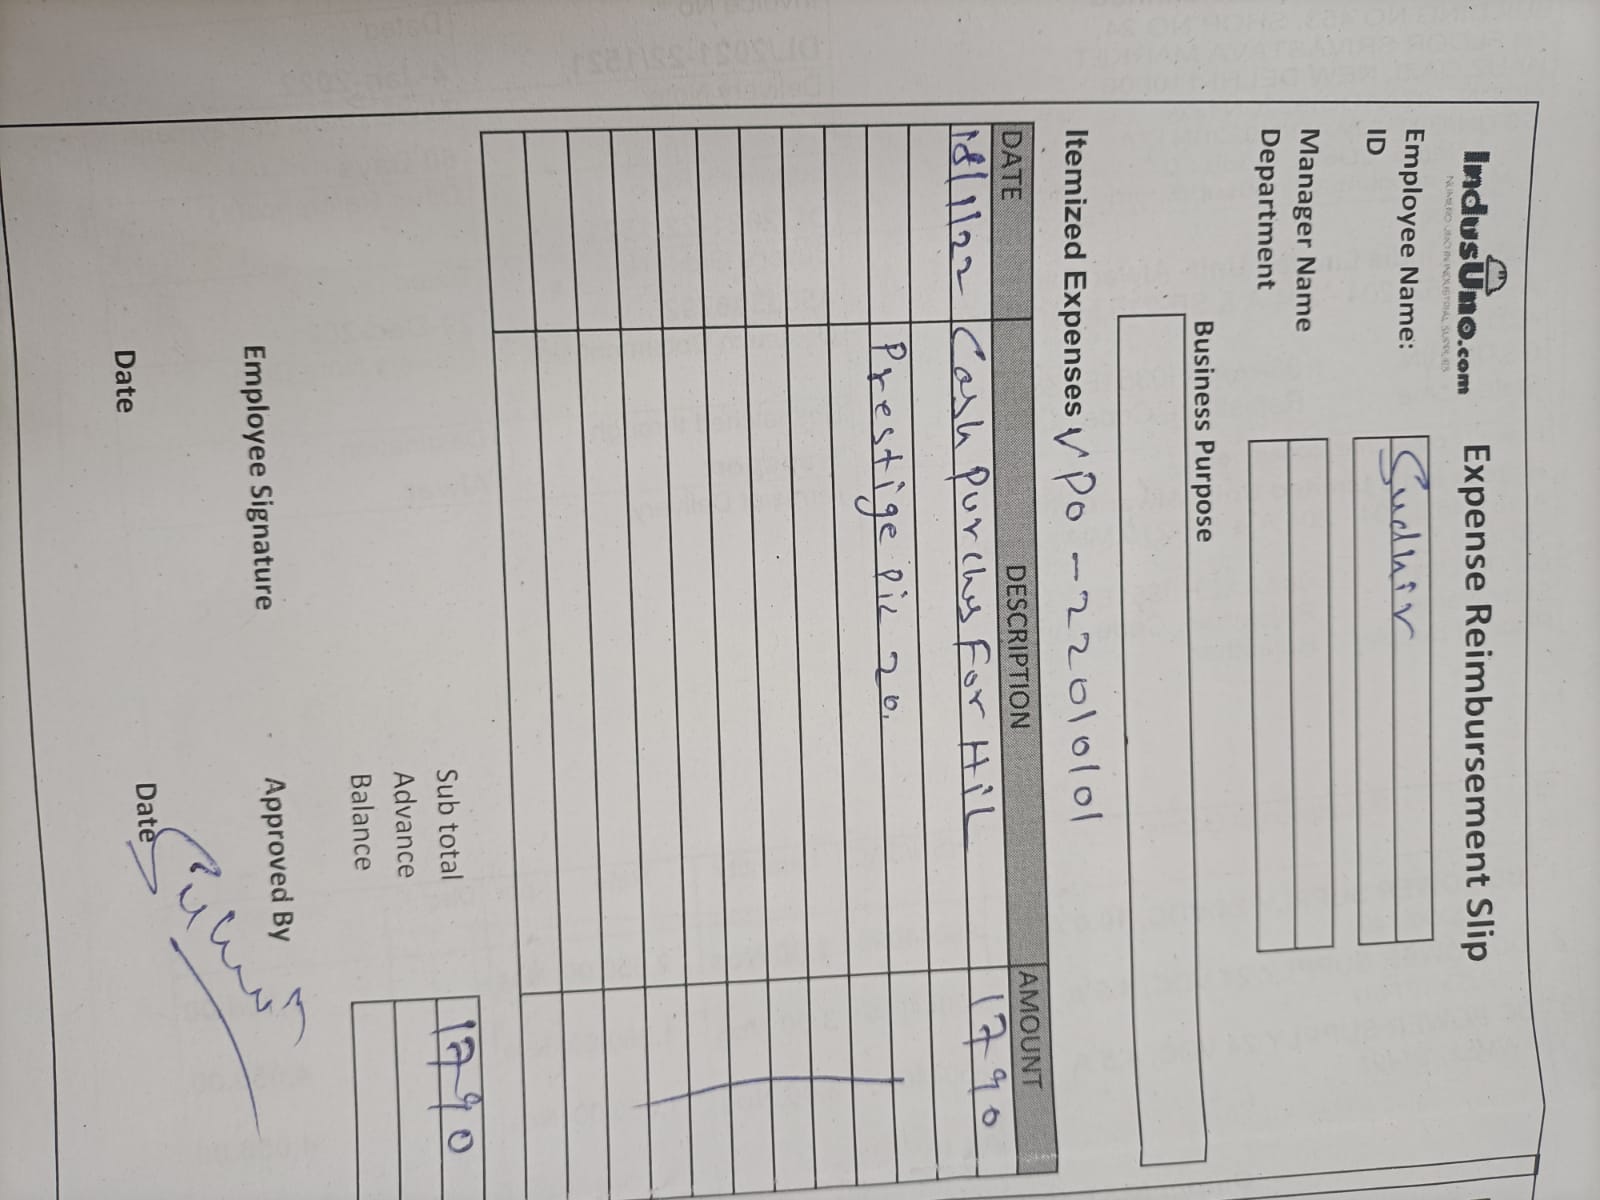 IndusUno.com
NUMERO UNO IN INDUSTRIAL SUPPLIES
Expense Reimbursement Slip
Employee Name: Sudhir
ID
Manager Name
Department
Business Purpose
Itemized Expenses VPO-22010101
DATE DESCRIPTION AMOUNT
18/1/22 Cash Purchus For HiL 1790
Prestige pic 20.
Sub total 1790
Advance
Balance
Employee Signature Approved By
Date Date